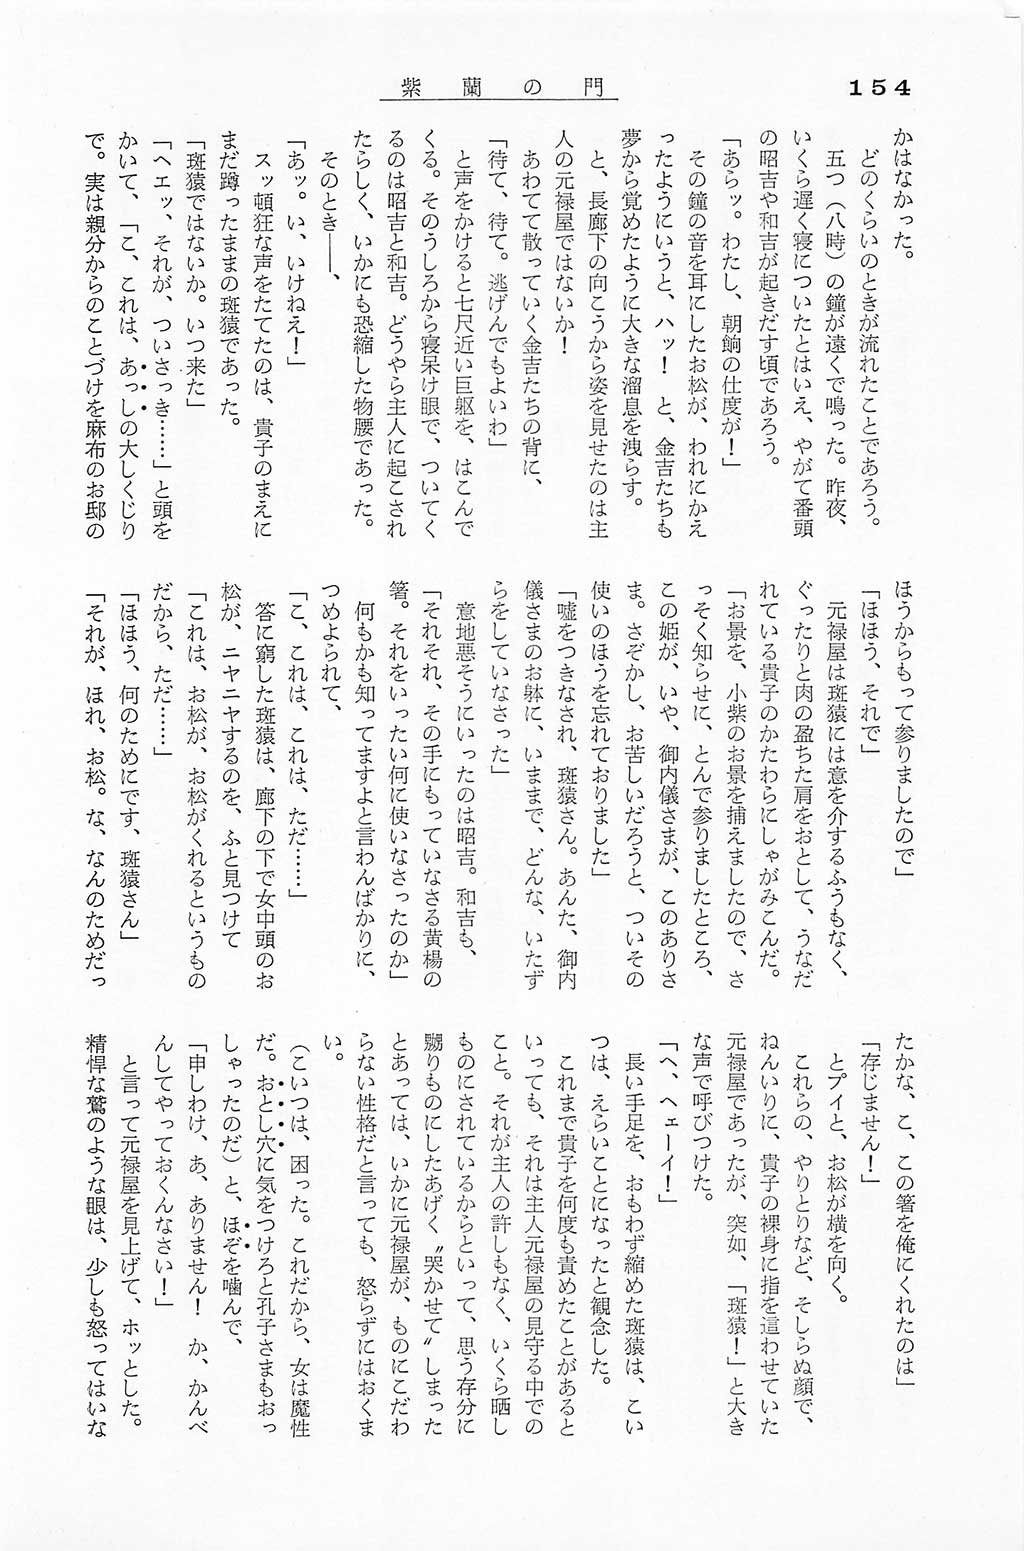 154
紫蘭の門
かはなかった。
　どのくらいのときが流れたことであろう。
　五つ（八時）の鐘が遠くで鳴った。昨夜、
いくら遅く寝についたとはいえ、やがて番頭
の昭吉や和吉が起きだす頃であろう。
「あらッ。わたし、朝餉の仕度が！」
　その鐘の音を耳にしたお松が、われにかえ
ったようにいうと、ハッ！　と、金吉たちも
夢から覚めたように大きな溜息を洩らす。
　と、長廊下の向こうから姿を見せたのは主
人の元禄屋ではないか！
　あわてて散っていく金吉たちの背に、
「待て、待て。逃げんでもよいわ」
　と声をかけると七尺近い巨躯を、はこんで
くる。そのうしろから寝呆け眼で、ついてく
るのは昭吉と和吉。どうやら主人に起こされ
たらしく、いかにも恐縮した物腰であった。
　そのとき――、
「あッ。い、いけねえ！」
　スッ頓狂な声をたてたのは、貴子のまえに
まだ蹲ったままの斑猿であった。
「斑猿ではないか。いつ来た」
「ヘエッ、それが、ついさっき……」と頭を
かいて、「こ、これは、あっしの大しくじり
で。実は親分からのことづけを麻布のお邸の
ほうからもって参りましたので」
「ほほう、それで」
　元禄屋は斑猿には意を介するふうもなく、
ぐったりと肉の盈ちた肩をおとして、うなだ
れている貴子のかたわらにしゃがみこんだ。
「お景を、小紫のお景を捕えましたので、さ
っそく知らせに、とんで参りましたところ、
この姫が、いや、御内儀さまが、このありさ
ま。さぞかし、お苦しいだろうと、ついその
使いのほうを忘れておりました」
「嘘をつきなされ、斑猿さん。あんた、御内
儀さまのお躰に、いままで、どんな、いたず
らをしていなさった」
　意地悪そうにいったのは昭吉。和吉も、
「それそれ、その手にもっていなさる黄楊の
箸。それをいったい何に使いなさったのか」
　何もかも知ってますよと言わんばかりに、
つめよられて、
「こ、これは、これは、ただ……」
　答に窮した斑猿は、廊下の下で女中頭のお
松が、ニヤニヤするのを、ふと見つけて
「これは、お松が、お松がくれるというもの
だから、ただ……」
「ほほう、何のためにです、斑猿さん」
「それが、ほれ、お松。な、なんのためだっ
たかな、こ、この箸を俺にくれたのは」
「存じません！」
　とプイと、お松が横を向く。
　これらの、やりとりなど、そしらぬ顔で、
ねんいりに、貴子の裸身に指を這わせていた
元禄屋であったが、突如、「斑猿！」と大き
な声で呼びつけた。
「ヘ、ヘェーイ！」
　長い手足を、おもわず縮めた斑猿は、こい
つは、えらいことになったと観念した。
　これまで貴子を何度も責めたことがあると
いっても、それは主人元禄屋の見守る中での
こと。それが主人の許しもなく、いくら晒し
ものにされているからといって、思う存分に
嬲りものにしたあげく〝哭かせて〟しまった
とあっては、いかに元禄屋が、ものにこだわ
らない性格だと言っても、怒らずにはおくま
い。
（こいつは、困った。これだから、女は魔性
だ。おとし穴に気をつけろと孔子さまもおっ
しゃったのだ）と、ほぞを噛んで、
「申しわけ、あ、ありません！　か、かんべ
んしてやっておくんなさい！」
　と言って元禄屋を見上げて、ホッとした。
精悍な鷲のような眼は、少しも怒ってはいな